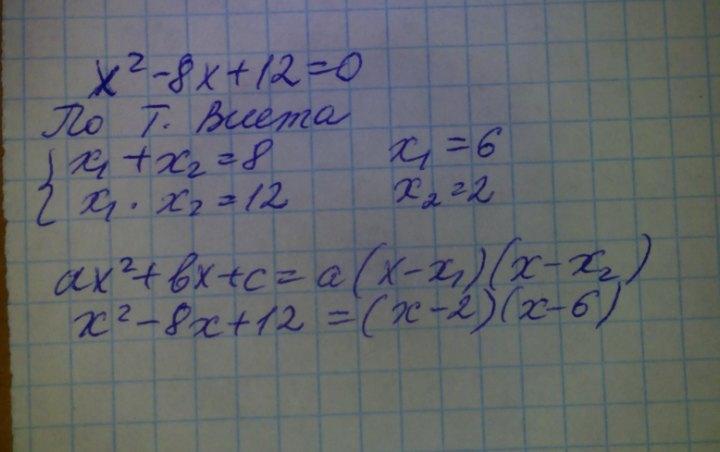 x² - 8x + 12 = 0
По Т. Виета
{ x₁ + x₂ = 8 x₁ = 6
{ x₁ · x₂ = 12 x₂ = 2
ax² + bx + c = a(x - x₁)(x - x₂)
x² - 8x + 12 = (x - 2)(x - 6)